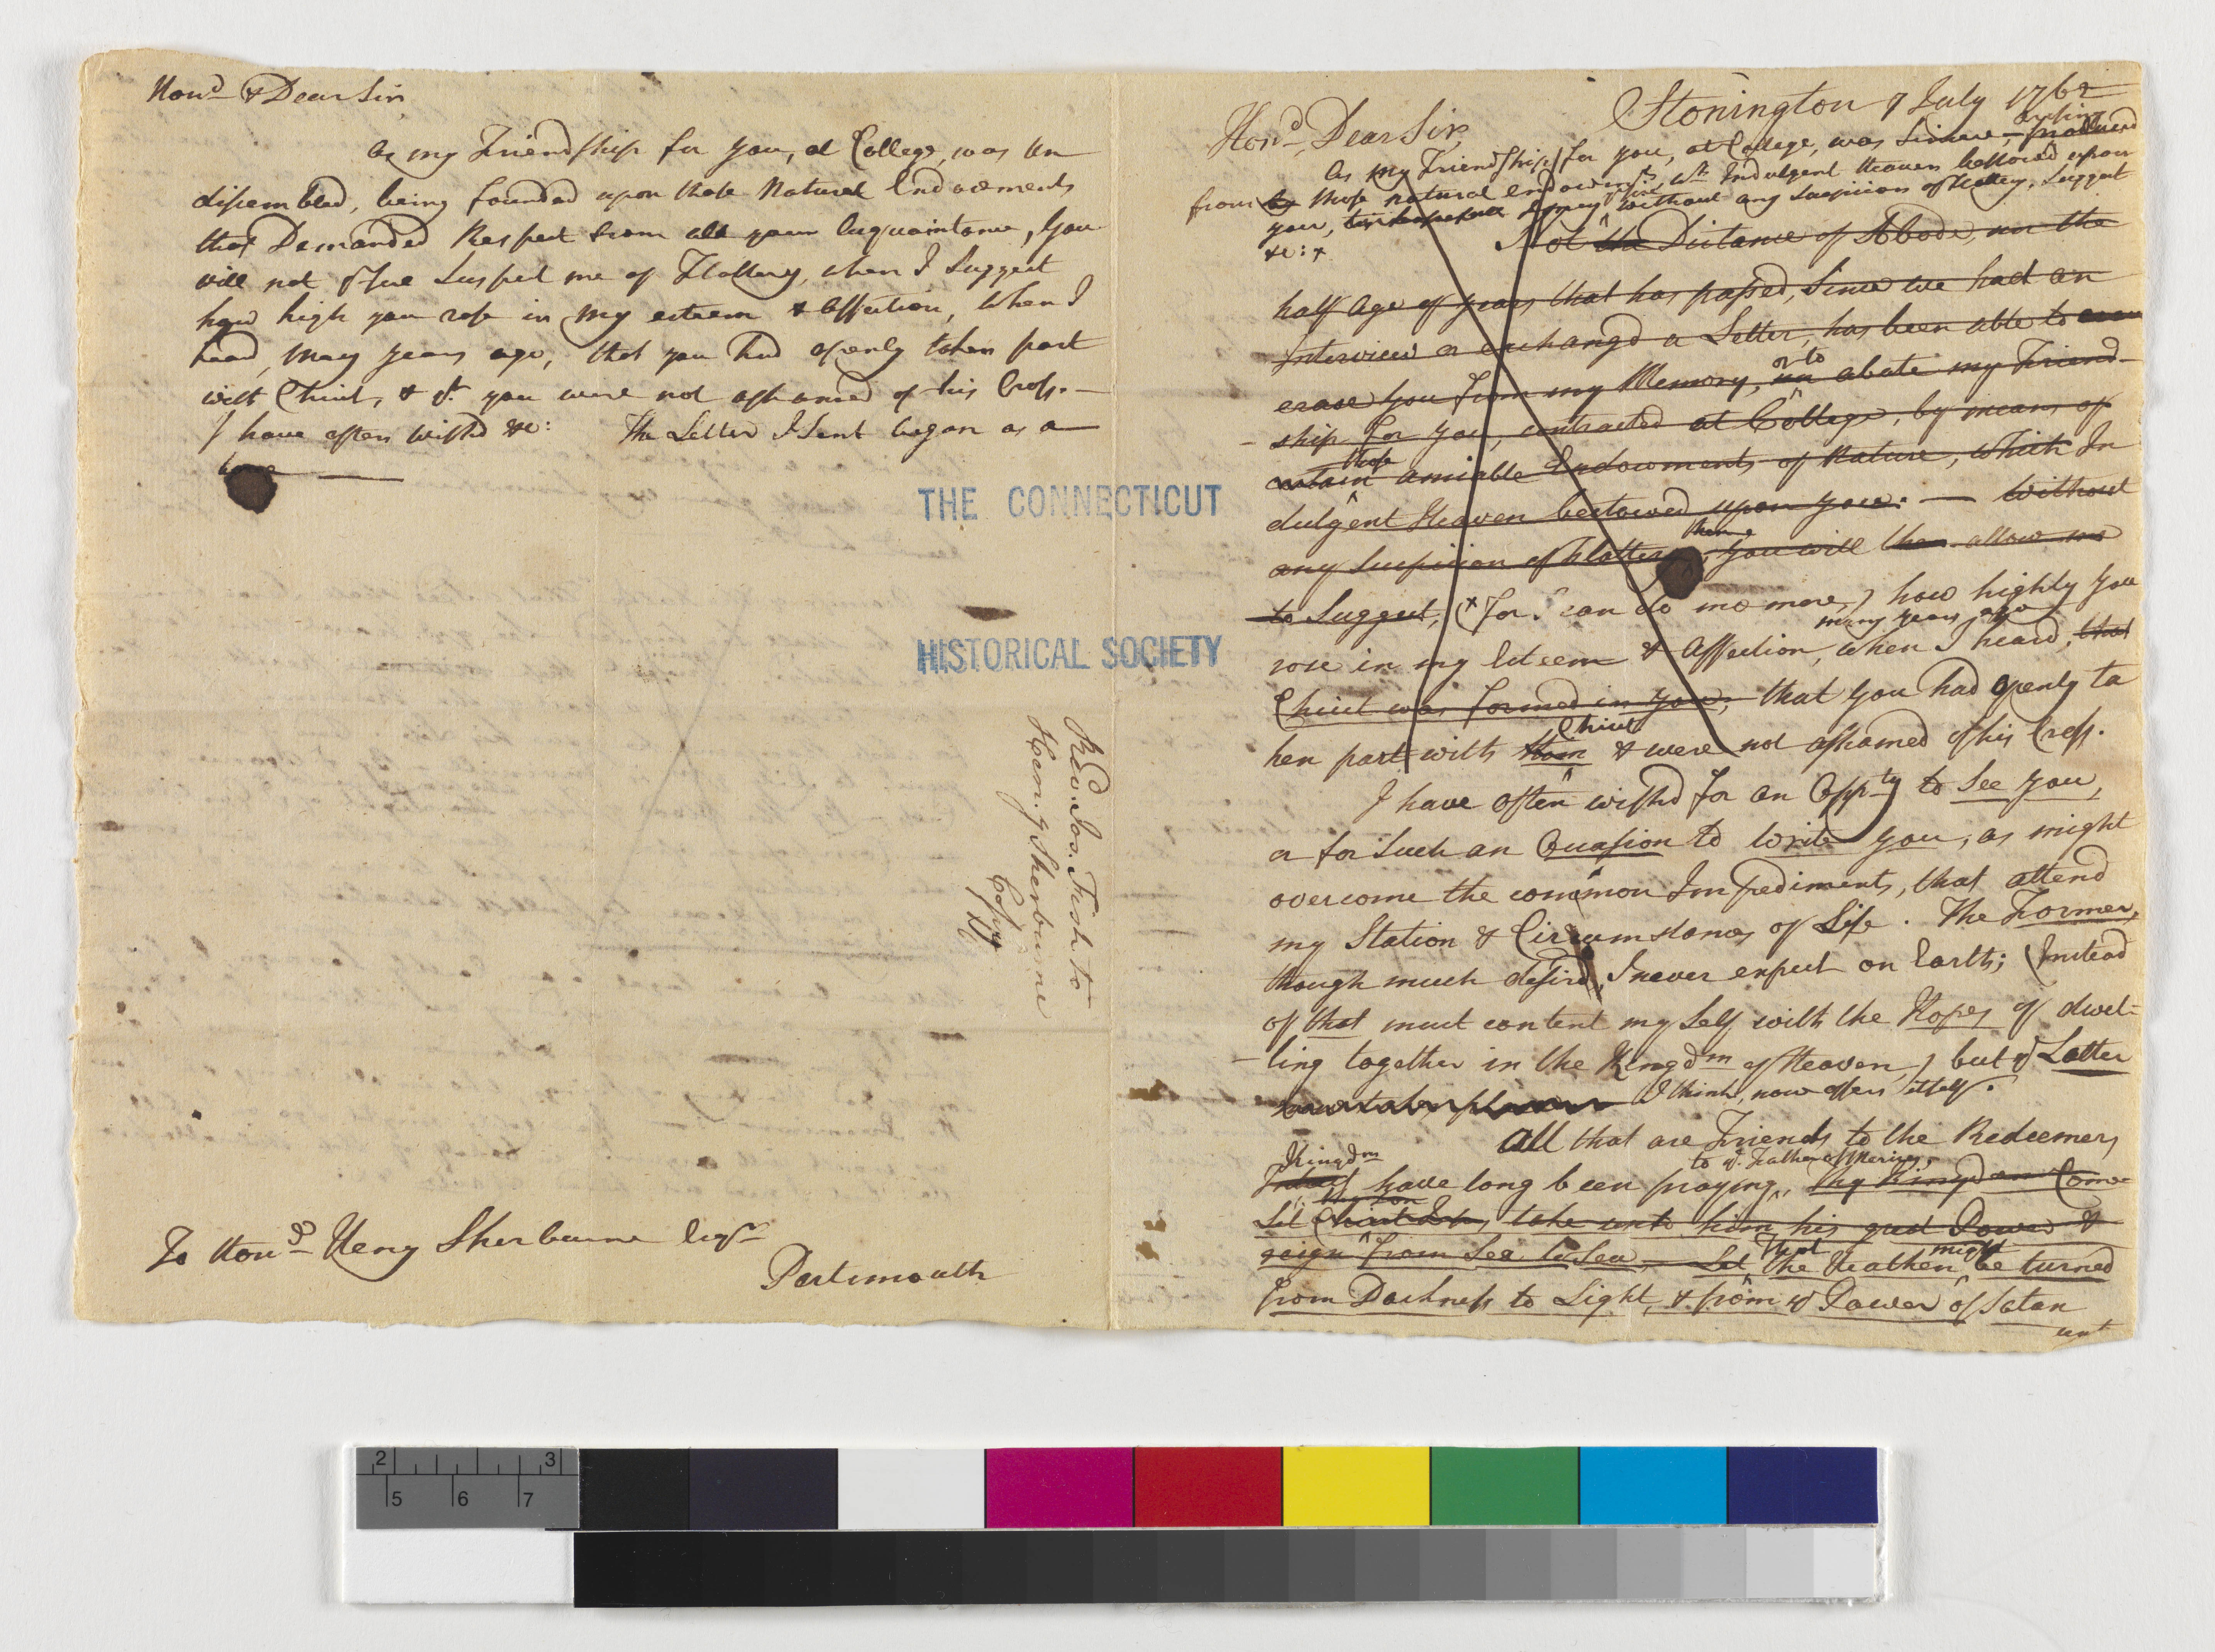 Hon.d & Dear Sir
As my Friendship for you, at College, was un
dissembled, being founded upon those Natural Endowments
that Demanded Respect from all your Acquaintance, You
will not Suspect me of Flattery, when I Suggest
how high you rose in my esteem & Affection, when I
heard, many years ago, that you had openly taken part
with Christ, & yt. you were not ashamed of his Cross. —
I have often wishd &c: The Letter I Sent began as a
bove
THE CONNECTICUT
HISTORICAL SOCIETY
Rev.d Jos. Fish to
Hen: Sherburne
Copy
To Hon.d Henry Sherburne Esqr
Portsmouth
Stonington 7 July 1762
Hon.d Dear Sir,
arising
As my Friendship for you, at College, was Sincere, —
from by those natural endowmts wh. Indulgent Heaven bestowd upon
you, without any Suspicion of Flattery, Suggest
&c: +
Not the Distance of Abode, nor the
half age of years that has passed, Since we had an
Interview or exchangd a Letter, has been able to
erase you from my Memory, or to abate my Friend-
-ship for you, contracted at College, by means of
those
certain amiable Endowments of Nature, which In
dulgent Heaven bestowed upon you. — Without
any Suspicion of Flattery, you will then allow me
to Suggest, (for I can do no more,) how highly you
many years ago
rose in my Esteem & Affection, when I heard, that
Christ was formed in you, that you had openly ta
Christ
ken part with him & were not ashamed of his Cross.
I have often wishd for an Oppty to See you,
or for Such an Occasion to write you, as might
overcome the common Impediments, that attend
my Station & Circumstances of Life. The Former,
though much desird, I never expect on Earth; (Instead
of that must content my Self with the Hopes of dwel-
-ling together in the Kingdm of Heaven,) but ye Latter
I think, now offers itself.
All that are Friends to the Redeemers
Kingdm to ye Father of Mercies,
have long been praying, thy Kingdom Come
Let take unto him his great Power &
reign from Sea to Sea, — Let That the Heathen might be turned
from Darkness to Light, & from ye Power of Satan
unt
2 3
5 6 7